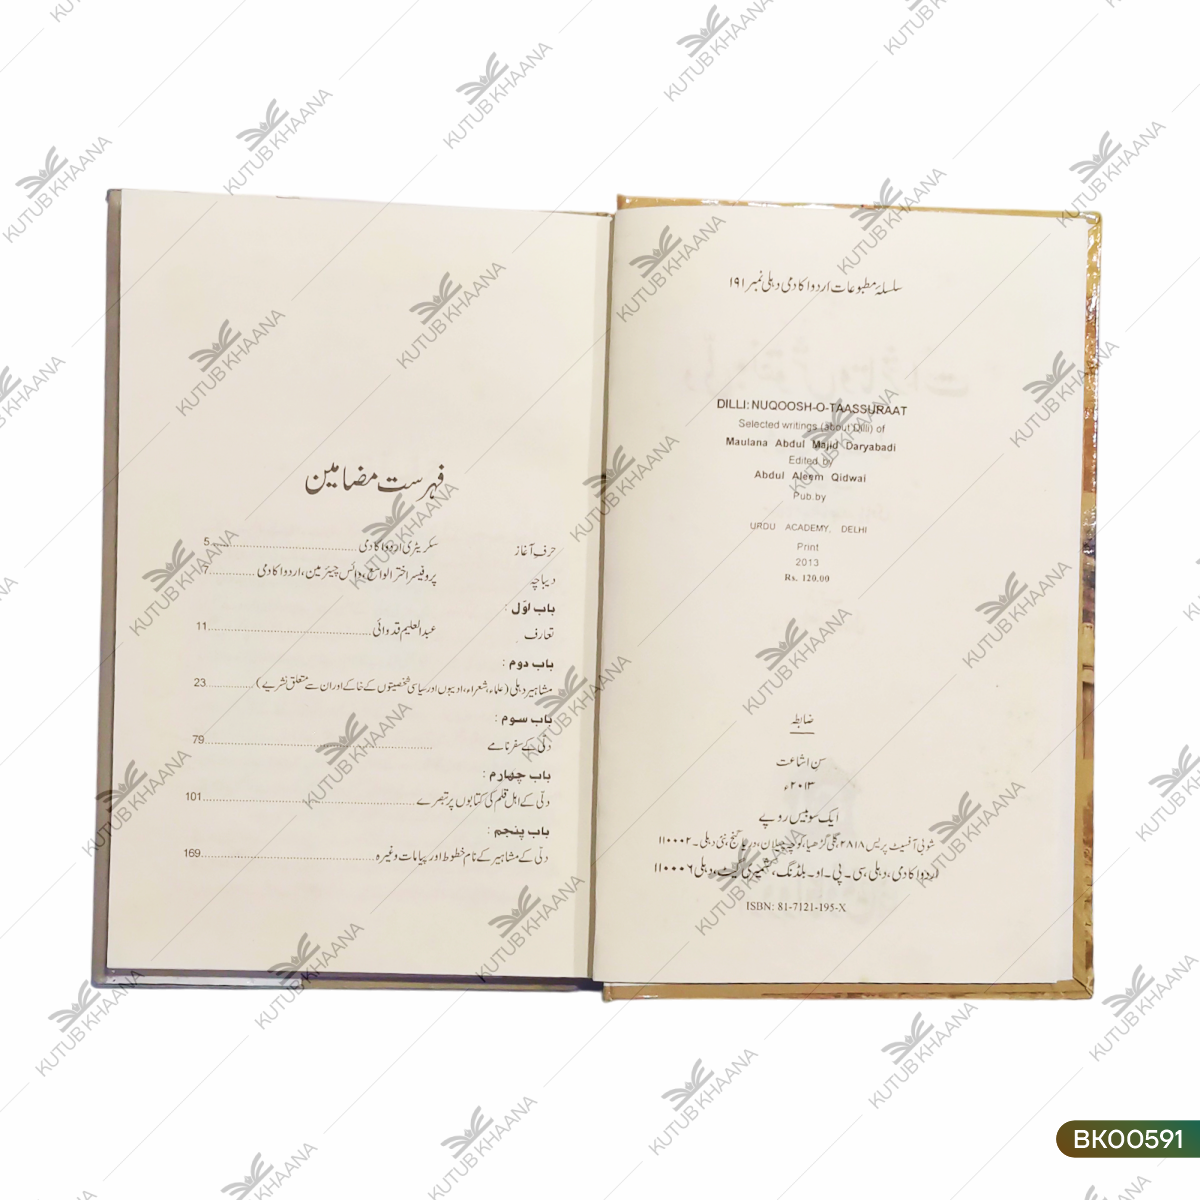 سلسلۂ مطبوعات اردو اکادمی دہلی نمبر ۱۹۱
DILLI: NUQOOSH-O-TAASSURAAT
Selected writings (about Dilli) of
Maulana Abdul Majid Daryabadi
Edited by
Abdul Aleem Qidwai
Pub.by
URDU ACADEMY, DELHI
Print
2013
Rs. 120.00
ضابطہ
سن اشاعت
۲۰۱۳ء
ایک سو بیس روپے
شوبی آفسیٹ پریس ۲۸۱۸، گلی گڑھیا، کوچہ چیلان، دریا گنج، نئی دہلی۔ ۱۱۰۰۰۲
اردو اکادمی، دہلی، سی۔ پی۔ او۔ بلڈنگ، کشمیری گیٹ، دہلی ۱۱۰۰۰۶
ISBN: 81-7121-195-X
فہرست مضامین
حرف آغاز سکریٹری اردو اکادمی 5
دیباچہ پروفیسر اختر الواسع، وائس چیئرمین، اردو اکادمی 7
باب اوّل :
تعارف عبدالعلیم قدوائی 11
باب دوم :
مشاہیر دہلی (علماء، شعراء، ادیبوں اور سیاسی شخصیتوں کے خاکے اور ان سے متعلق نشریے) 23
باب سوم :
دلّی کے سفر نامے 79
باب چہارم :
دلّی کے اہل قلم کی کتابوں پر تبصرے 101
باب پنجم :
دلّی کے مشاہیر کے نام خطوط اور پیامات وغیرہ 169
KUTUB KHAANA
BK00591